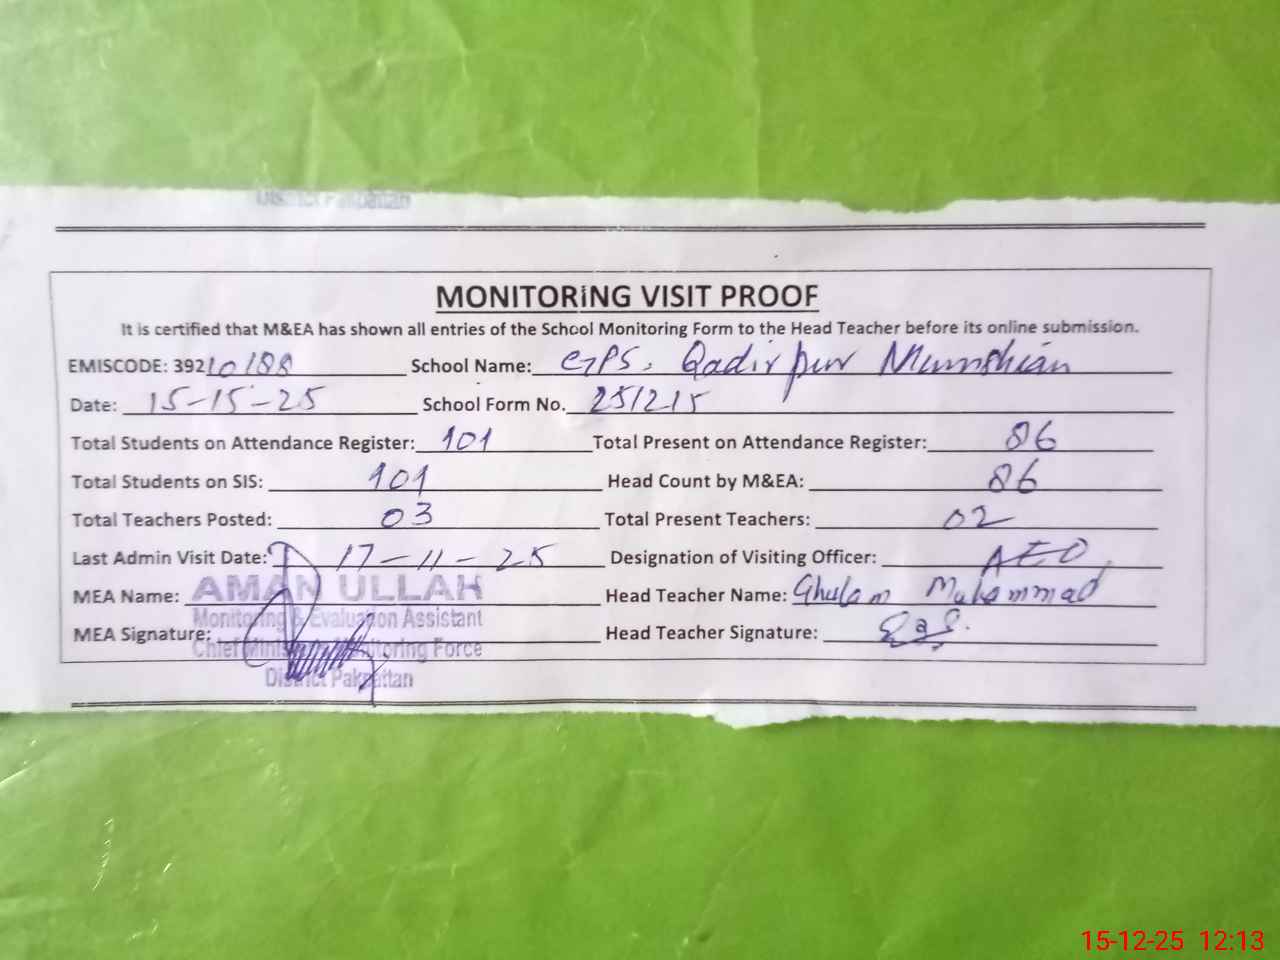 District Pakpattan
MONITORING VISIT PROOF
It is certified that M&EA has shown all entries of the School Monitoring Form to the Head Teacher before its online submission.
EMISCODE: 39210188 School Name: GPS, Qadirpur Munshian
Date: 15-15-25 School Form No. 251215
Total Students on Attendance Register: 101 Total Present on Attendance Register: 86
Total Students on SIS: 101 Head Count by M&EA: 86
Total Teachers Posted: 03 Total Present Teachers: 02
Last Admin Visit Date: 17-11-25 Designation of Visiting Officer: AEO
MEA Name: AMAN ULLAH Head Teacher Name: Ghulam Muhammad
Monitoring & Evaluation Assistant
MEA Signature: Head Teacher Signature:
Chief Minister Monitoring Force
District Pakpattan
15-12-25 12:13